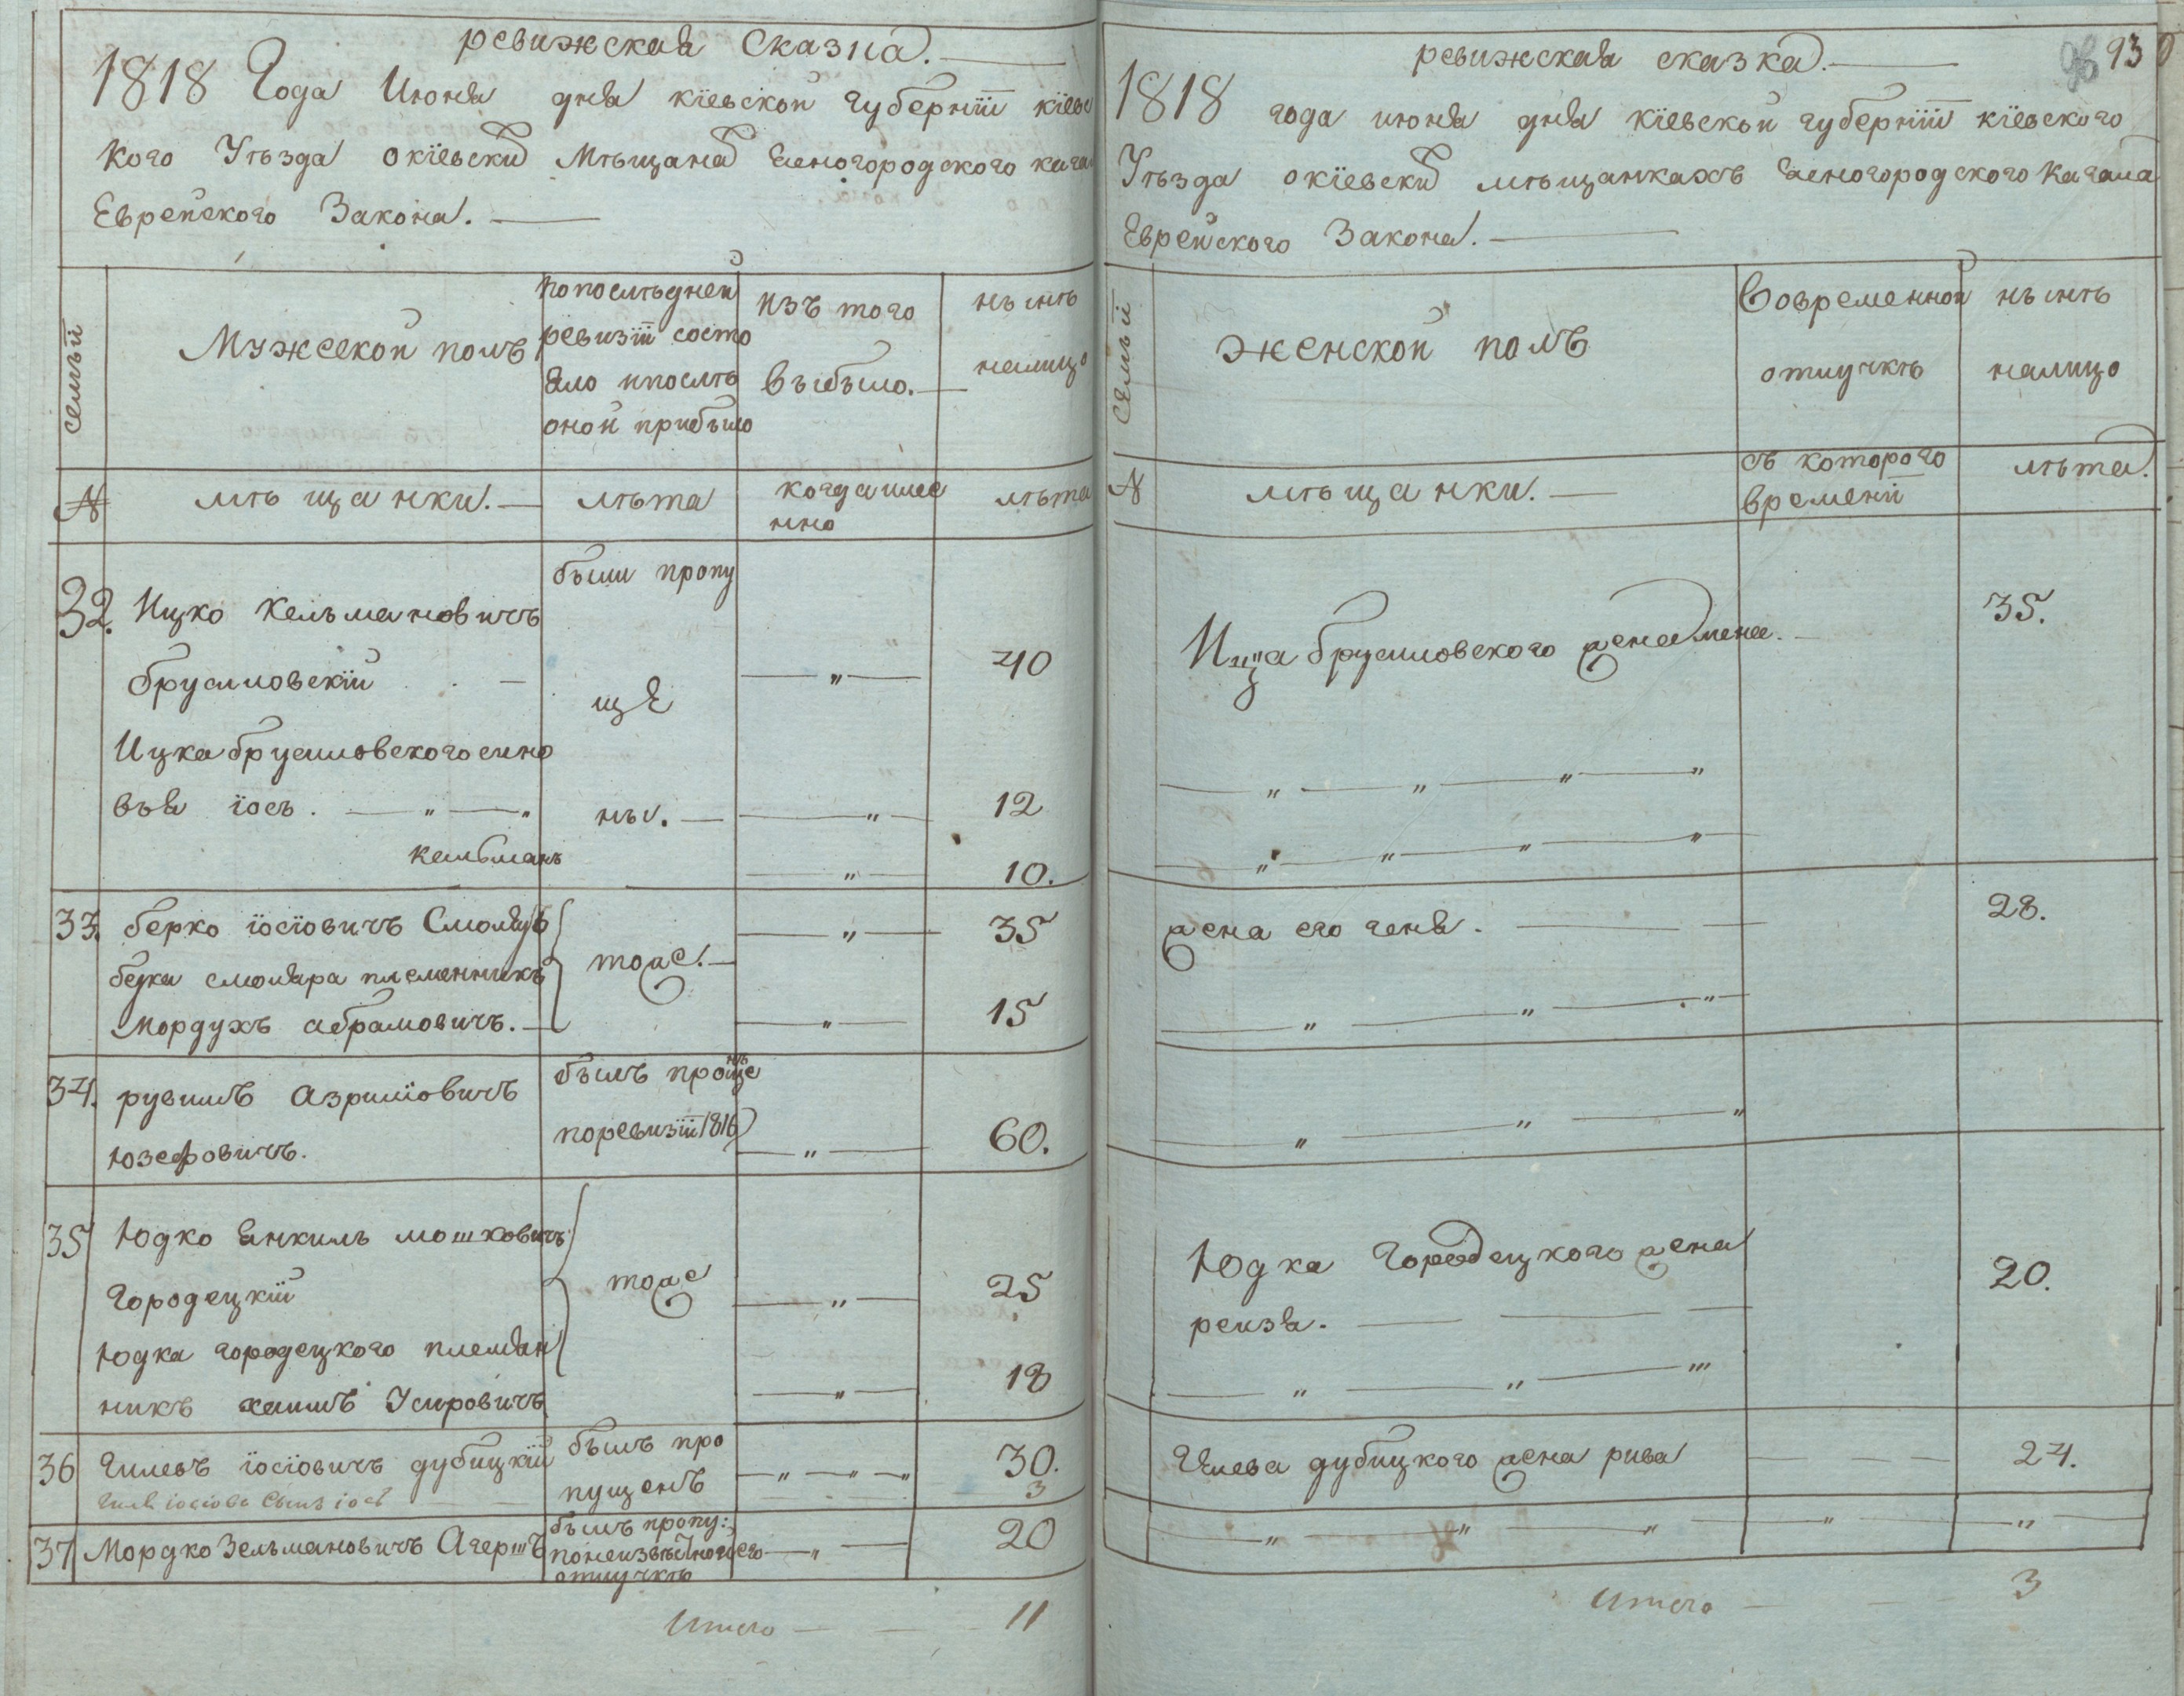 ревижская Сказка.
1818 Года Июня дня кіевской губерніи кіевс
кого Уѣзда о кіевски Мѣщана Ясногородского кага
Еврейского Закона.
семьи
Мужеской полъ
По послѣдней ревизіи состо яло и послѣ оной прибыло
изъ того выбыло.
нынѣ налицо
№
мѣщанки.
лѣта
когда имен но
лѣта
32. Ицко Кельмановичъ
были пропу
брусиловскій
40
ще
Ицка брусиловского сино
вья іось.
ны.
12
кельманъ
10.
33. берко іосіовичъ Смоляръ
35
тоже.
берка смоляра племенникъ
Мордухъ абрамовичъ.
15
34. рувинъ Азриліовичъ
былъ пропущенъ
по ревизіи 1816
Юзефовичъ.
60.
35 Юдко Янкиль мошковичъ
Городецкій
тоже
25
Юдка городецкого племян
никъ хаимъ Усировичъ
18
36 Гилевъ іосіовичъ дубицкій
былъ про
пущенъ
30.
іосіова Сынъ іось
3
37 Мордко Зельмановичъ Агершъ
былъ пропу:
по неизвѣстной его
отлучкѣ
20
Итого 11
93
ревижская сказка.
1818 года июня дня кіевской губерніи кіевского
Уѣзда о кіевски мѣщанкахъ Ясногородского Кагала
Еврейского Закона.
семьи
женской полъ
Во временной отлучкѣ
нынѣ налицо
№
мѣщанки.
съ которого времени
лѣта.
Ицка брусиловского жена мена.
35.
жена его геня.
28.
Юдка Городецкого жена
20.
рейзя.
Гилева дубицкого жена рива
24.
Итого 3